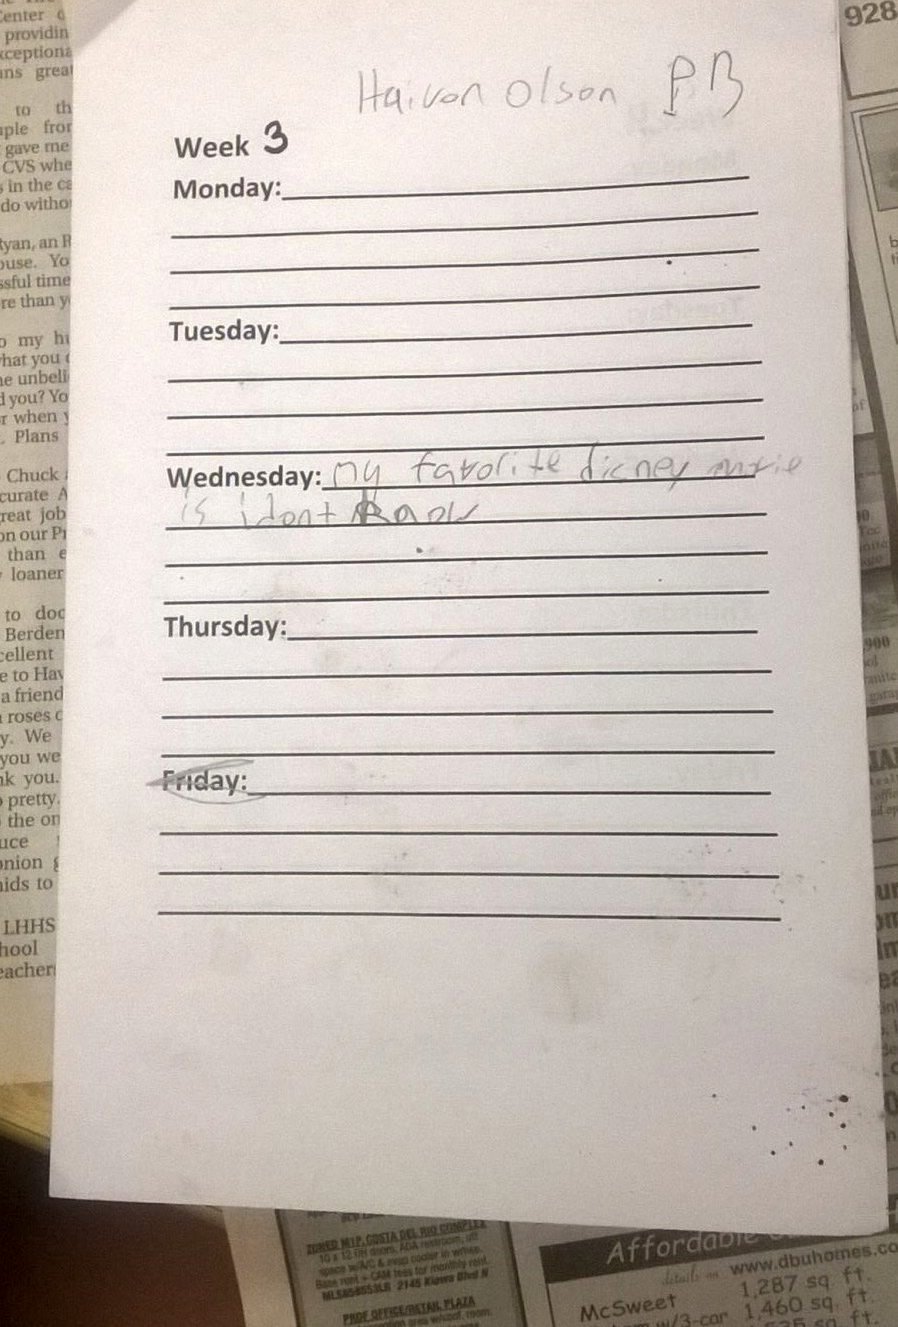 928
Center
providin
to th
gave me
CVS whe
s in the ca
do witho
Ryan, an R
ouse. Yo
ssful time
re than y
o my hu
hat you
he unbeli
d you? Yo
r when y
. Plans
Chuck
curate A
reat job
on our Pr
than e
loaner
to doc
Berden
cellent
e to Hav
a friend
roses
y. We
you we
nk you.
pretty.
the on
uce
onion g
aids to
LHHS
hool
eacher
Haivon Olson PB
Week 3
Monday:
Tuesday:
Wednesday: my favorite dicney movie
is i dont know
Thursday:
Friday:
ZONED M1P, COSTA DEL RIO COMPLEX
MLS#858553LB 2145 Kiowa Blvd N
PROF OFFICE/RETAIL PLAZA
Affordable
details on www.dbuhomes.co
McSweet 1,287 sq. ft.
w/3-car 1,460 sq. ft.